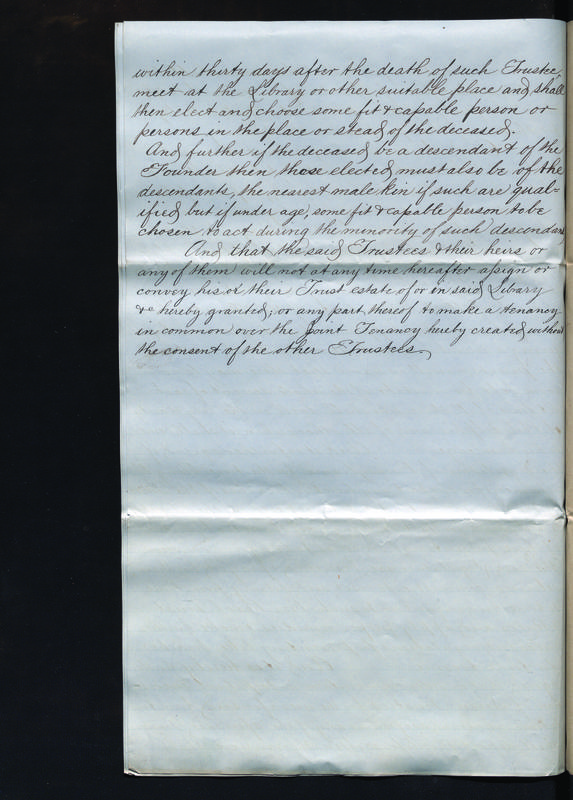 within thirty days after the death of such Trustee,
meet at the Library or other suitable place and shall
then elect and choose some fit & capable person or
persons in the place or stead of the deceased.
And further if the deceased be a descendant of the
Founder then those elected must also be of the
descendants, the nearest male kin if such are qual-
ified but if under age, some fit & capable person to be
chosen to act during the minority of such descendant
And that the said Trustees & their heirs or
any of them will not at any time hereafter assign or
convey his or their Trust estate of or in said Library
&c hereby granted, or any part thereof to make a tenancy
in common over the Joint Tenancy hereby created without
the consent of the other Trustees.